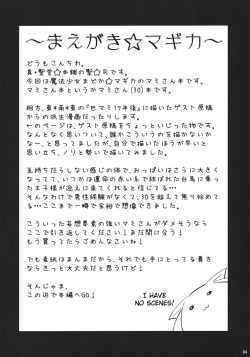 ～まえがき☆マギカ～
どうもこんちわ。
真・聖堂☆本舗の聖☆司です。
今回は魔法少女まどか☆マギカのマミさん本です。
マミさん本というかマミさん(30)本です。
相方、東★南★東の『巴マミ17年後』に描いたゲスト原稿
からの派生漫画だったりします。
←のページは、ゲスト原稿をちょっといじった物です。
なんとなく思いついて、誰かこういうの描かないか
なー、と思ってましたが、自分で描いたほうが早いと
思い立ち、ノリノリで描きました。
気持ちだらしない感じの体で、おっぱいはさらに大きく
なってて、いつかは運命の赤い糸で結ばれた白馬に乗っ
た王子様が迎えに来てくれると信じてる…
そんなわけで男性経験がなくて、30を超えて焦り始めて
る…ここまで一瞬で余裕で想像できました。
こういった妄想要素の強いマミさんがダメそうなら
ここで引き返してください！まだ間に合う！
もう買ってたらごめんなさいね！
でも表紙はまんまだから、それでも手にとってる貴方
ならきっと大丈夫だと思うけど！
そんじゃま、
この辺で本編へGO！
I HAVE
NO SCENES!